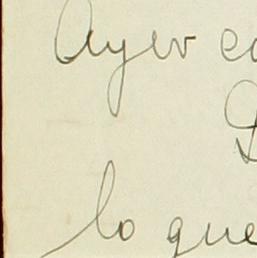 Ayer
lo que